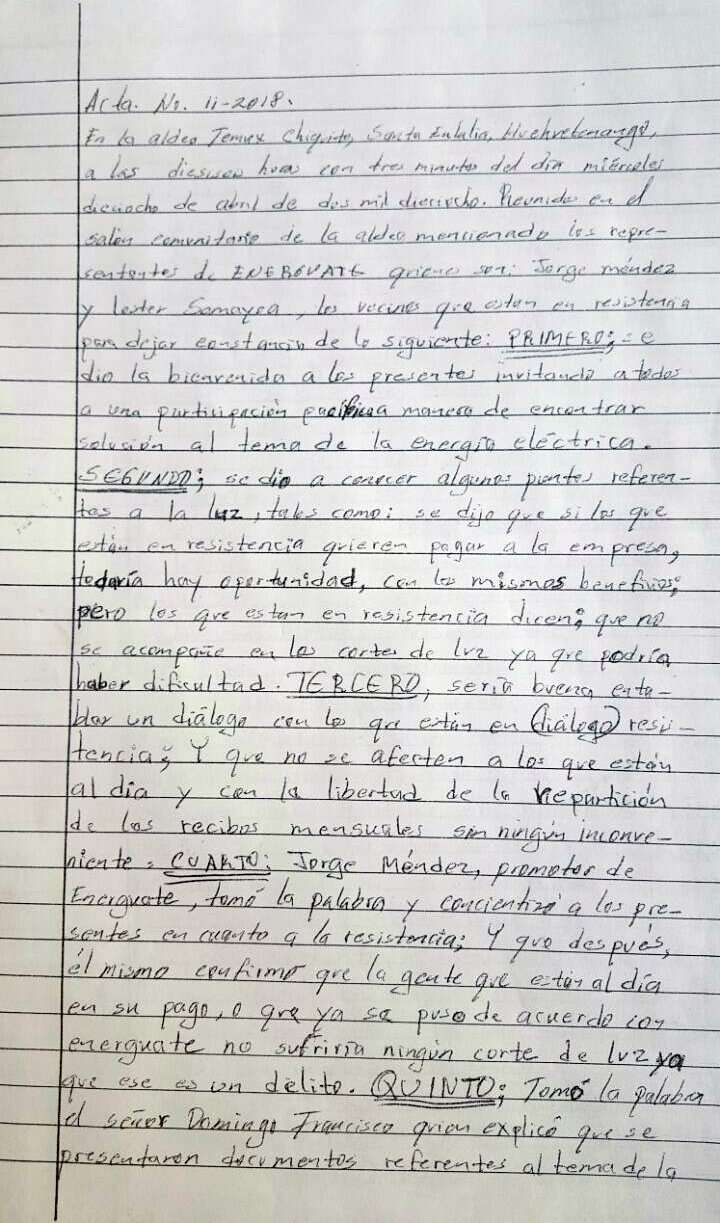 Acta. No. 11-2018.
En la aldea Temux Chiquito, Santa Eulalia, Huehuetenango,
a las horas con tres minutos del día miércoles
dieciocho de abril de dos mil dieciocho. Reunidos en el
salón comunitario de la aldea mencionado los repre-
sentantes de son: Jorge méndez
y Lester Samayoa, los vecinos que estan en resistencia
para dejar constancia de lo siguiente: PRIMERO; se
dio la bienvenida a los presentes invitando a todos
a una partisipación pacifica manera de encontrar
solución al tema de la energía eléctrica.
SEGUNDO; se dio a conocer algunos puntos referen-
tes a la luz, tales como: se dijo que si los que
están en resistencia quieren pagar a la empresa,
todavía hay oportunidad, con los mismos beneficios;
pero los que estan en resistencia dicen; que no
se acompañe en los cortes de luz ya que podría
haber dificultad. TERCERO; sería buena enta-
blar un diálogo con los que están en (diálogo) resis-
tencia; Y que no se afecten a los que están
al día y con la libertad de la repartición
de los recibos mensuales sin ningún inconve-
niente. CUARTO; Jorge Méndez, promotor de
Energuate, tomó la palabra y concientizó a los pre-
sentes en cuanto a la resistencia; Y que después,
él mismo confirmó que la gente que están al día
en su pago, o que ya se puso de acuerdo con
energuate no sufriría ningún corte de luz ya
que ese es un delito. QUINTO; Tomó la palabra
el señor Domingo Francisco quien explicó que se
presentaron documentos referentes al tema de la